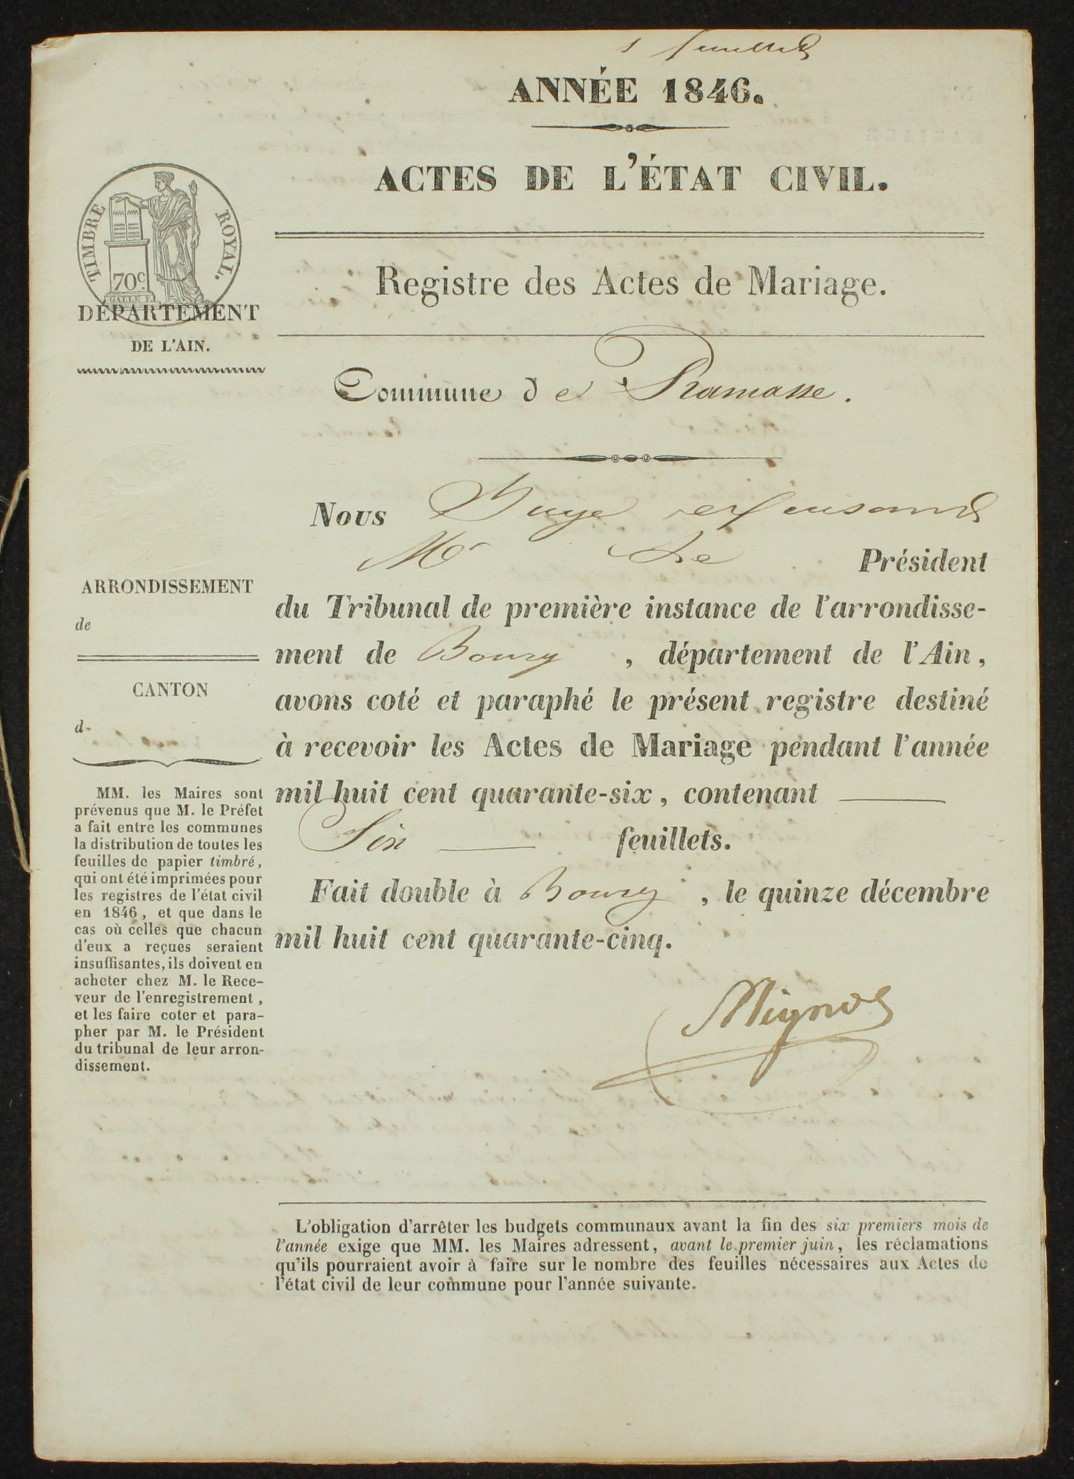 feuillet
ANNÉE 1846.
ACTES DE L'ÉTAT CIVIL.
TIMBRE ROYAL.
70c
DÉPARTEMENT
DE L'AIN.
Registre des Actes de Mariage.
Commune de Ramasse.
Nous Juge
Président
du Tribunal de première instance de l'arrondisse-
ment de Bourg, département de l'Ain,
avons coté et paraphé le présent registre destiné
à recevoir les Actes de Mariage pendant l'année
mil huit cent quarante-six, contenant
Six feuillets.
Fait double à Bourg, le quinze décembre
mil huit cent quarante-cinq.
ARRONDISSEMENT
de
CANTON
d
MM. les Maires sont
prévenus que M. le Préfet
a fait entre les communes
la distribution de toutes les
feuilles de papier timbré,
qui ont été imprimées pour
les registres de l'état civil
en 1846, et que dans le
cas où celles que chacun
d'eux a reçues seraient
insuffisantes, ils doivent en
acheter chez M. le Rece-
veur de l'enregistrement,
et les faire coter et para-
pher par M. le Président
du tribunal de leur arron-
dissement.
L'obligation d'arrêter les budgets communaux avant la fin des six premiers mois de
l'année exige que MM. les Maires adressent, avant le premier juin, les réclamations
qu'ils pourraient avoir à faire sur le nombre des feuilles nécessaires aux Actes de
l'état civil de leur commune pour l'année suivante.